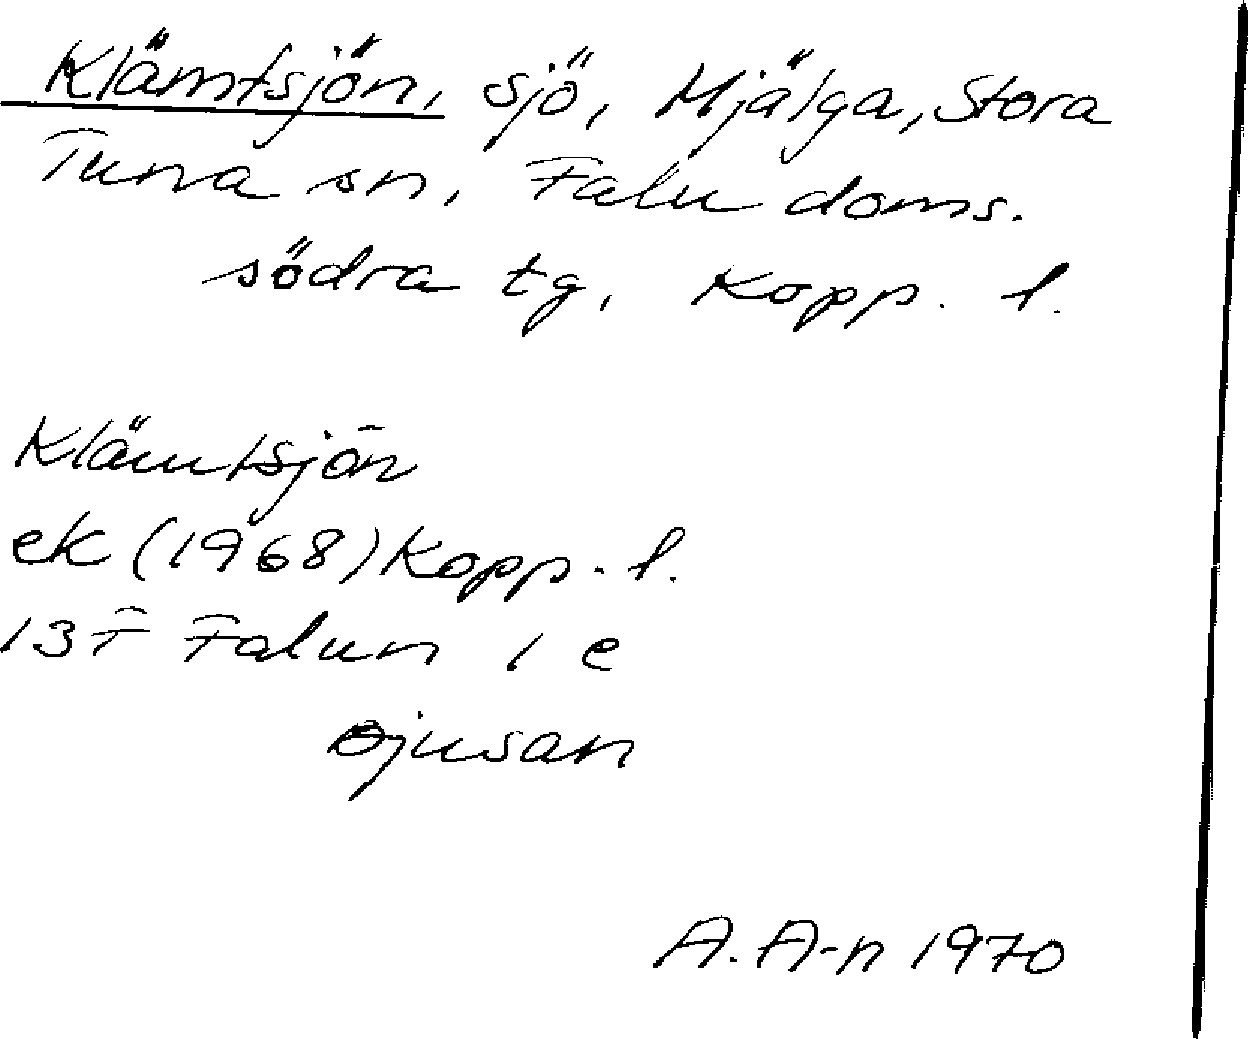 Klämtsjön, sjö, Mjälga, Stora
Tuna sn, Falu doms.
södra tg, Kopp. l.
Klämtsjön
ek (1968) Kopp. l.
13F Falun 1 e
Djusan
A. A-n 1970